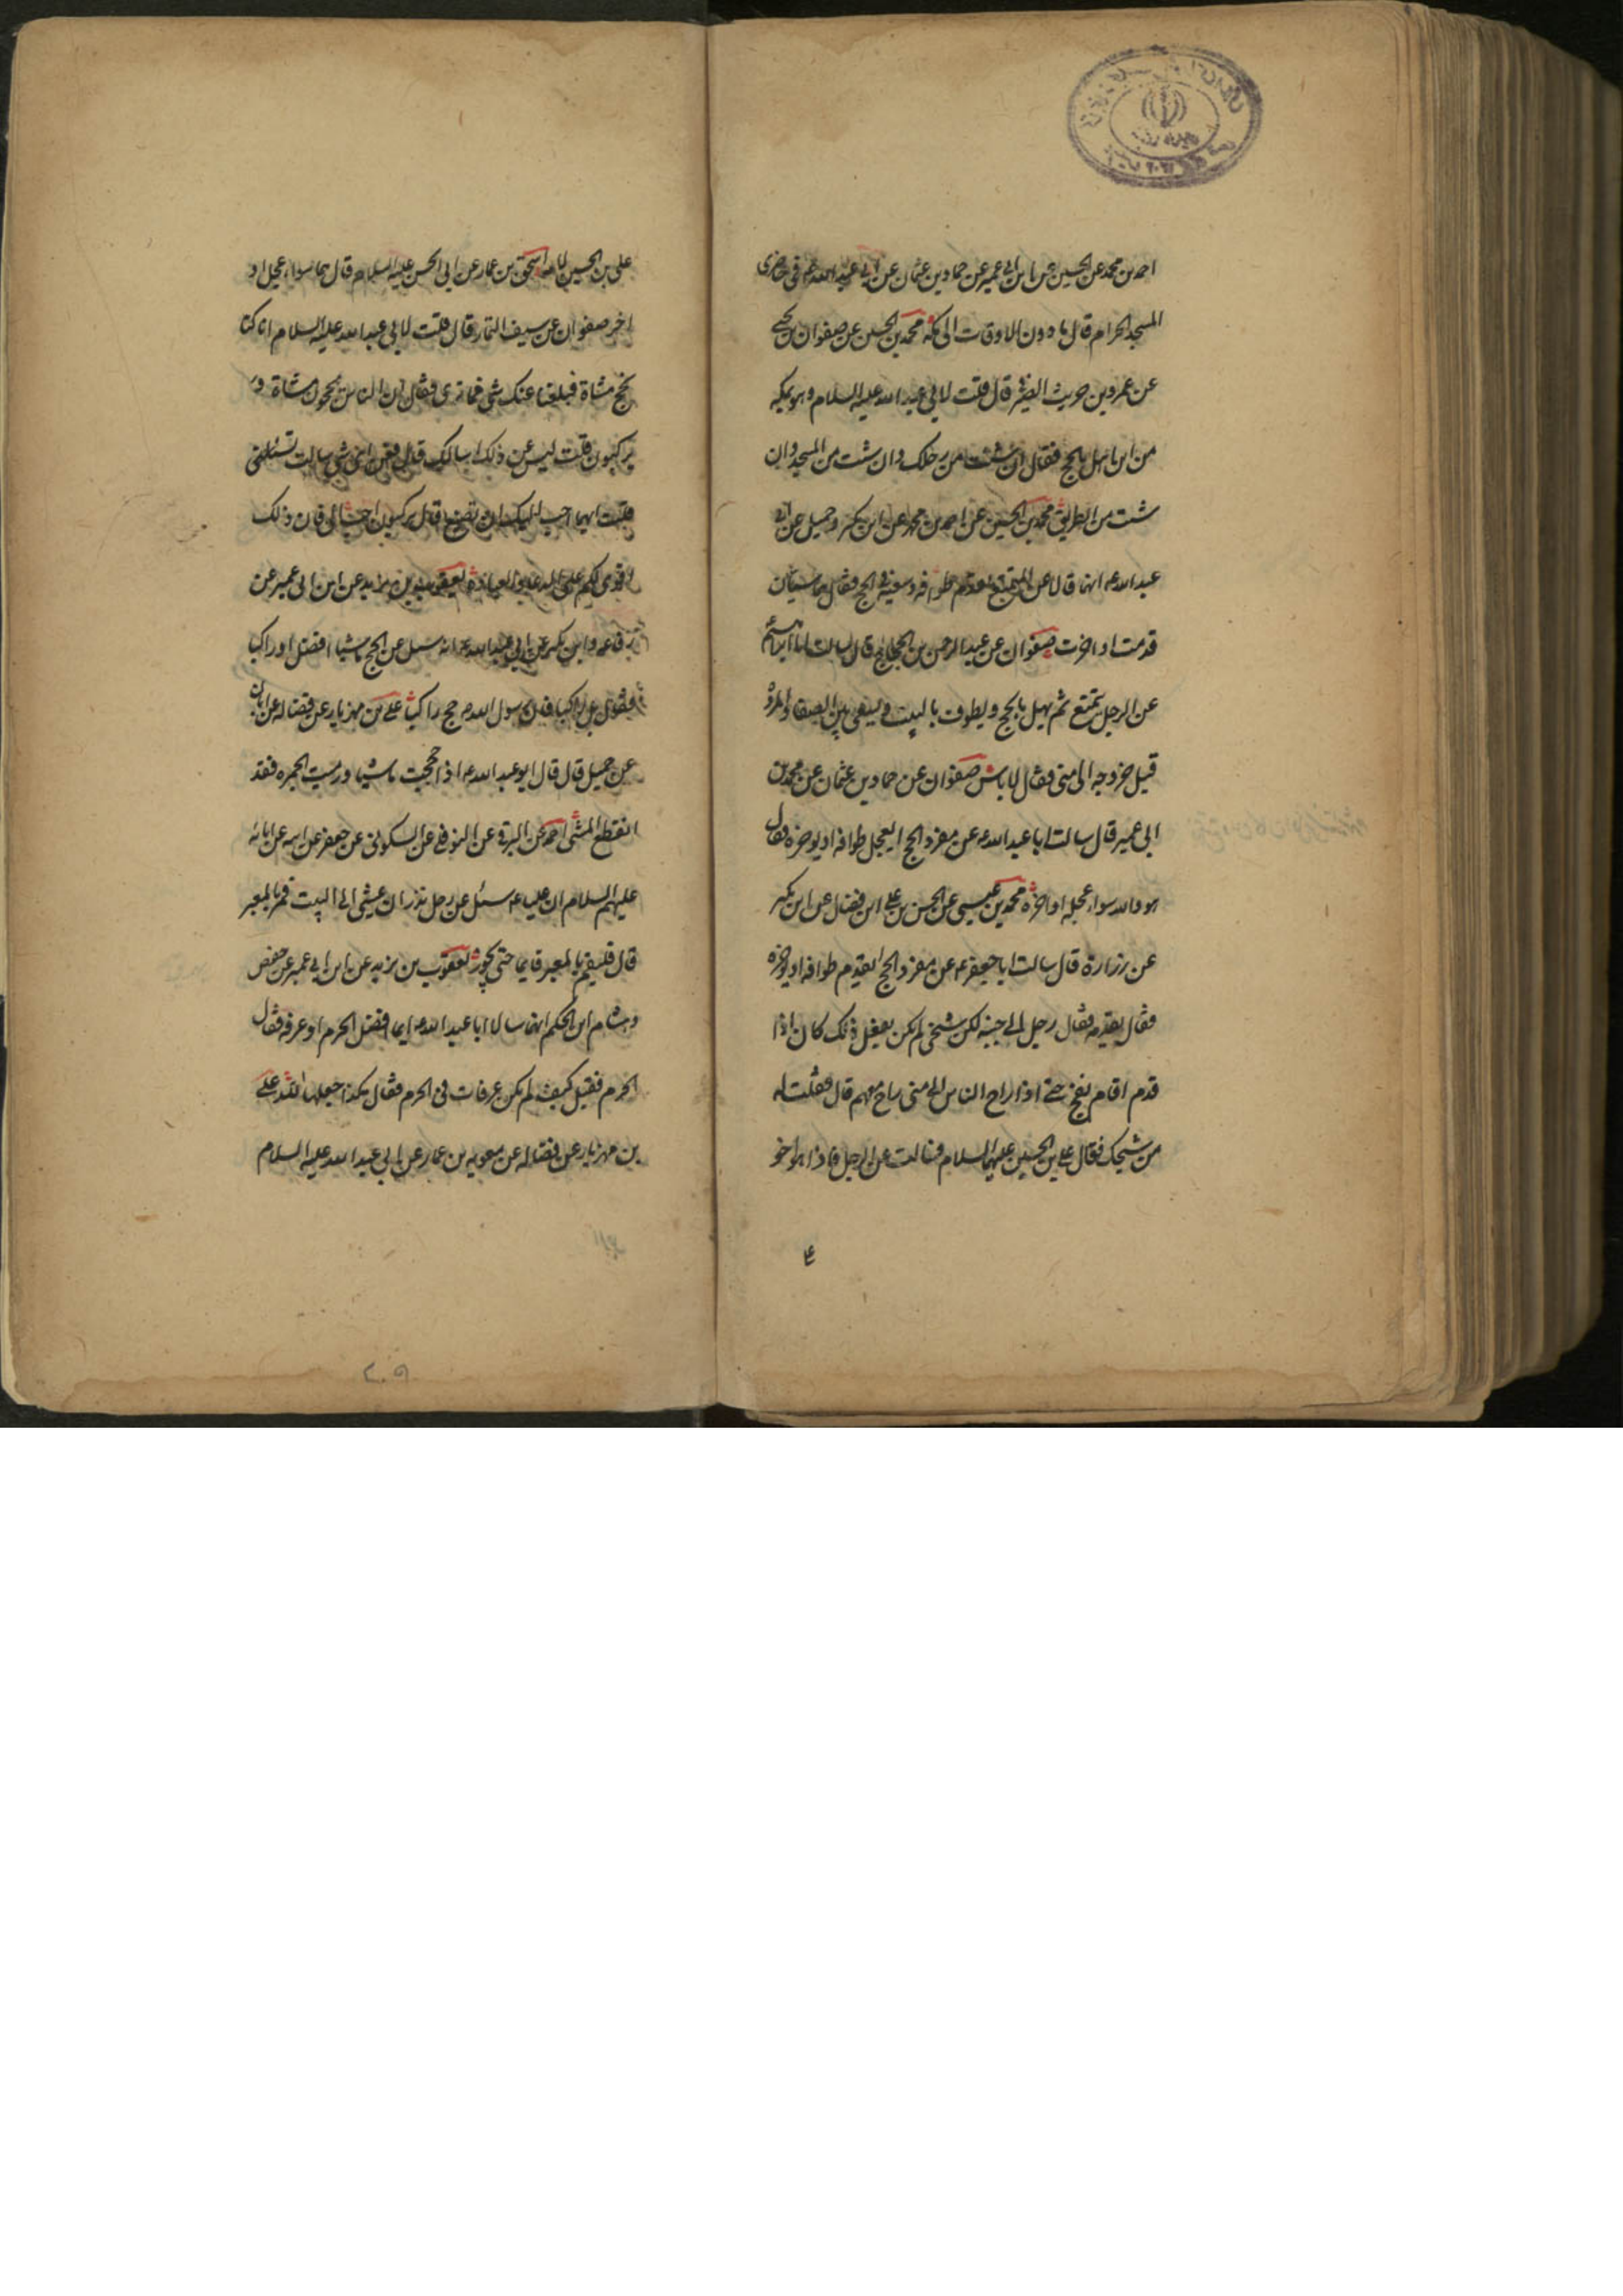 احمد بن محمد عن الحسين عن ابن ابي عمير عن حماد بن عثمان عن ابي عبد الله ع في حاضري
المسجد الحرام قال ما دون الاوقات الى مكة محمد بن الحسين عن صفوان بن يحيى
عن عمرو بن حريث الصيرفي قال قلت لابي عبد الله عليه السلام وهو بمكه
من اين اهل بالحج فقال ان شئت من رحلك وان شئت من المسجد وان
شئت من الطريق محمد بن الحسين عن احمد بن محمد عن ابن بكير وجميل عن ابي
عبد الله ع انهما قالا عن المتمتع يقدم طوافه وسعيه في الحج فقال هما سيان
قدمت او اخرت صفوان عن عبد الرحمن بن الحجاج قال سالت ابا ابراهيم
عن الرجل يتمتع ثم يهل بالحج ويطوف بالبيت ويسعى بين الصفا والمروة
قبل خروجه الى منى فقال لا باس صفوان عن حماد بن عثمان عن محمد بن
ابي عمير قال سالت ابا عبد الله ع عن مفرد الحج ايعجل طوافه او يوخره فقال
هو والله سواء عجله او اخره محمد بن عيسى عن الحسن بن علي ابن فضال عن ابن بكير
عن زرارة قال سالت ابا جعفر ع عن مفرد الحج ايقدم طوافه او يوخره
فقال يقدمه فقال رجل الى جنبه لكن شيخي لم يكن يفعل ذلك كان اذا
قدم اقام بفخ حتى اذا راح الناس الى منى راح معهم قال فقلت له
من شيخك فقال علي بن الحسين عليهما السلام فسالت عن الرجل فاذا هو اخو
علي بن الحسين لامه اسحق بن عمار عن ابي الحسن عليه السلام قال هما سواء عجل او
اخر صفوان عن سيف التمار قال قلت لابي عبد الله عليه السلام انا كنا
نحج مشاة فبلغنا عنك شي فما ترى فقال ان الناس يحجون مشاة و
يركبون قلت ليس عن ذلك اسالك قال فعن اي شي سالت تسئلني
قلت ايهما احب اليك ان نصنع قال تركبون احب الي فان ذلك
اقوى لكم على الدعاء والعبادة يعقوب بن يزيد عن ابن ابي عمير عن
رفاعه وابن بكير عن ابي عبد الله ع انه سئل عن الحج ماشيا افضل او راكبا
فقال بل راكبا فان رسول الله ص حج راكبا علي بن مهزيار عن فضاله عن ابان
عن جميل قال قال ابو عبد الله ع اذا حججت ماشيا ورميت الجمره فقد
انقطع المشي احمد عن البرقي عن النوفلي عن السكوني عن جعفر عن ابيه عن ابائه
عليهم السلام ان عليا ع سئل عن رجل نذر ان يمشي الى البيت فمر بالمعبر
قال فليقم بالمعبر قايما حتى يجوز يعقوب بن يزيد عن ابن ابي عمير عن حفص
وهشام ابن الحكم انهما سالا ابا عبد الله ع ايما افضل الحرم او عرفه فقال
الحرم فقيل كيف لم يكن عرفات في الحرم فقال هكذا جعلها الله علي
بن مهزيار عن فضاله عن معويه بن عمار عن ابي عبد الله عليه السلام
٢٠٩